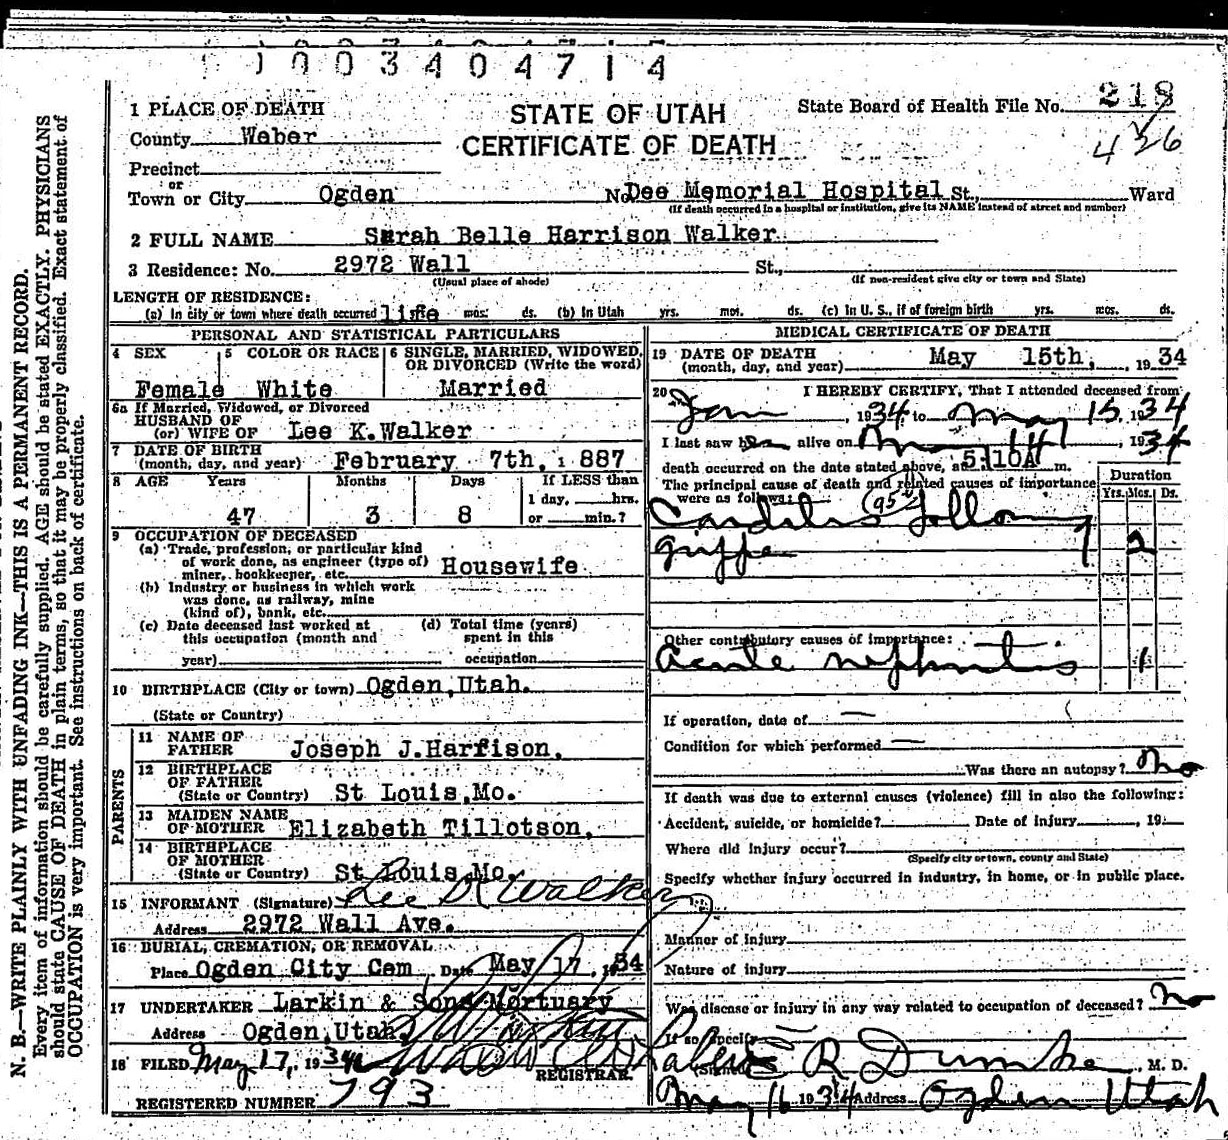 1003404714
1 PLACE OF DEATH
STATE OF UTAH
State Board of Health File No. 218
County Weber
CERTIFICATE OF DEATH
436
Precinct
or
Town or City Ogden No. Dee Memorial Hospital St., Ward
(If death occurred in a hospital or institution, give its NAME instead of street and number)
2 FULL NAME Sarah Belle Harrison Walker
3 Residence: No. 2972 Wall St.,
(Usual place of abode) (If non-resident give city or town and State)
LENGTH OF RESIDENCE:
(a) In city or town where death occurred life mos. ds. (b) In Utah yrs. mos. ds. (c) In U. S., if of foreign birth yrs. mos. ds.
PERSONAL AND STATISTICAL PARTICULARS
4 SEX 5 COLOR OR RACE 6 SINGLE, MARRIED, WIDOWED,
OR DIVORCED (Write the word)
Female White Married
6a If Married, Widowed, or Divorced
HUSBAND OF
(or) WIFE OF Lee K.Walker
7 DATE OF BIRTH
(month, day, and year) February 7th, 1887
8 AGE Years Months Days If LESS than
1 day, hrs.
47 3 8 or min.?
9 OCCUPATION OF DECEASED
(a) Trade, profession, or particular kind
of work done, as engineer (type of)
miner, bookkeeper, etc. Housewife
(b) Industry or business in which work
was done, as railway, mine
(kind of), bank, etc.
(c) Date deceased last worked at
this occupation (month and
year)
(d) Total time (years)
spent in this
occupation
10 BIRTHPLACE (City or town) Ogden,Utah.
(State or Country)
PARENTS
11 NAME OF
FATHER Joseph J.Harrison,
12 BIRTHPLACE
OF FATHER
(State or Country) St Louis,Mo.
13 MAIDEN NAME
OF MOTHER Elizabeth Tillotson,
14 BIRTHPLACE
OF MOTHER
(State or Country) St Louis,Mo.
15 INFORMANT (Signature) Lee K Walker
Address 2972 Wall Ave.
16 BURIAL, CREMATION, OR REMOVAL
Place Ogden City Cem Date May 17, 1934
17 UNDERTAKER Larkin & Sons Mortuary
Address Ogden,Utah.
18 FILED May 17, 1934
REGISTRAR
REGISTERED NUMBER 793
MEDICAL CERTIFICATE OF DEATH
19 DATE OF DEATH
(month, day, and year) May 15th, 1934
20 I HEREBY CERTIFY, That I attended deceased from
Jan, 1934 to May 15, 1934
I last saw h alive on May 14, 1934
death occurred on the date stated above, at 5:10A m.
The principal cause of death and related causes of importance
were as follows:
Duration
Yrs. Mos. Ds.
Carditis following
grippe 2
Other contributory causes of importance:
Acute nephritis 1
If operation, date of —
Condition for which performed —
Was there an autopsy? No
If death was due to external causes (violence) fill in also the following:
Accident, suicide, or homicide? Date of injury , 19
Where did injury occur?
(Specify city or town, county and State)
Specify whether injury occurred in industry, in home, or in public place.
Manner of injury
Nature of injury
Was disease or injury in any way related to occupation of deceased? No
If so, specify
(Signed) E R Dumke, M. D.
May 16 1934 Address Ogden Utah
N. B.—WRITE PLAINLY WITH UNFADING INK—THIS IS A PERMANENT RECORD.
Every item of information should be carefully supplied. AGE should be stated EXACTLY. PHYSICIANS
should state CAUSE OF DEATH in plain terms, so that it may be properly classified. Exact statement of
OCCUPATION is very important. See instructions on back of certificate.